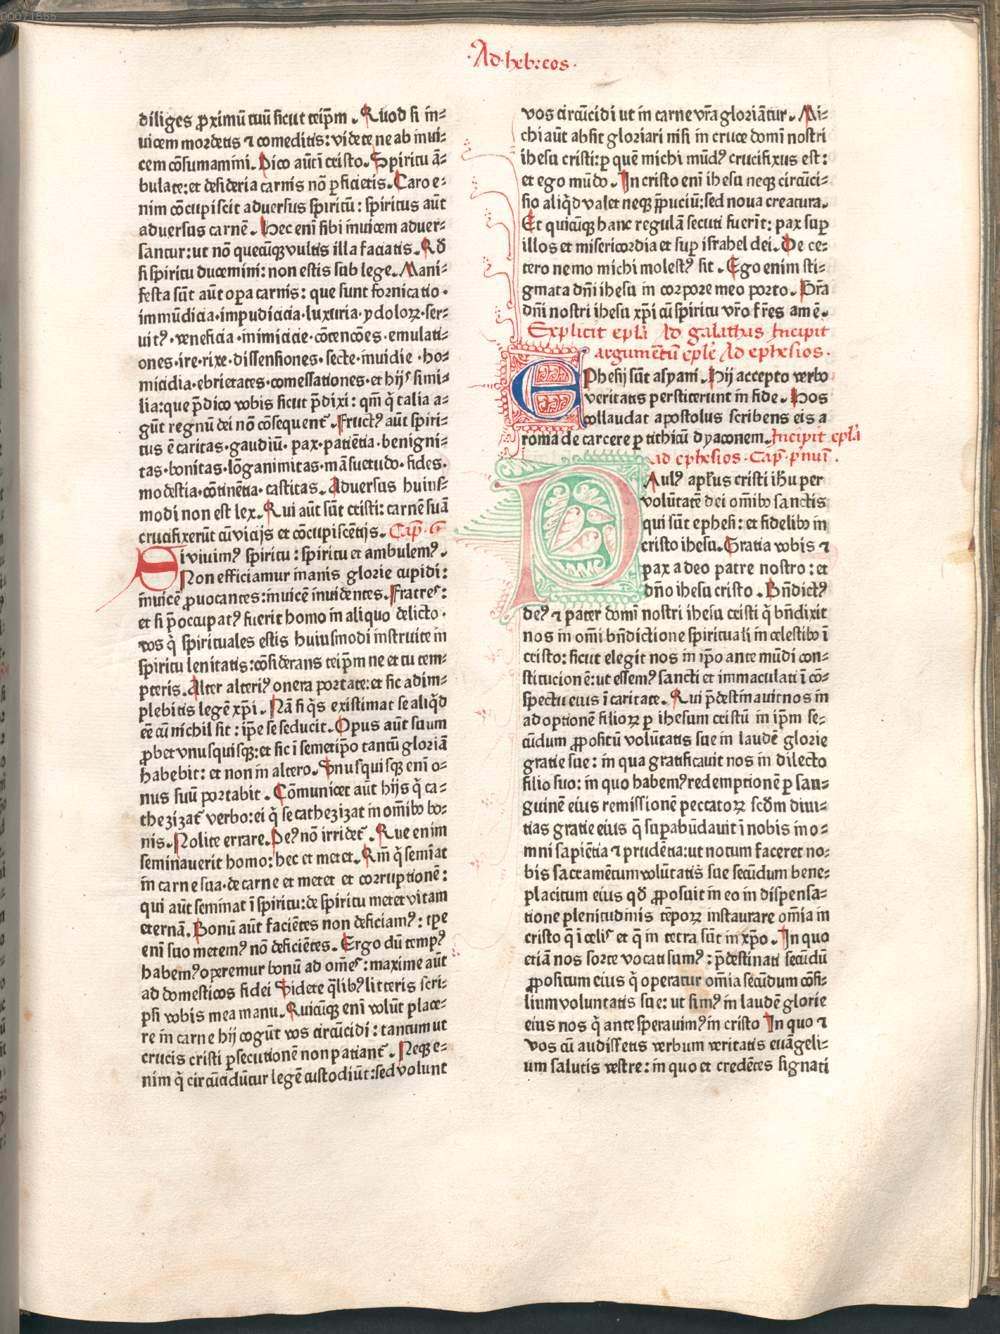 ·Ad·hebreos·
diliges ꝓximū tuū sicut teip̄m. Quod si in=
uicem mordetis ⁊ comeditis: videte ne ab inui=
cem cōsumamini. Dico aūt ī cristo. Spiritu ā=
bulate: et desideria carnis nō ꝑficietis. Caro e=
nim cōcupiscit aduersus spiritū: spiritus aūt
aduersus carnē. Hec enī sibi inuicem aduer=
santur: ut nō quecūqꝫ vultis illa faciatis. Qd̄
si spiritu ducemini: non estis sub lege. Mani=
festa sūt aūt oꝑa carnis: que sunt fornicatio·
immūdicia·impudicia·luxuria·ydoloꝝ·ser=
uitꝰ·veneficia·inimicicie·cōtencōes·emulati=
ones·ire·rixe·dissensiones·secte·inuidie·ho=
micidia·ebrietates·comessationes·et hijs simi=
lia: que p̄dico vobis sicut p̄dixi: qm̄ q̄ talia a=
gūt regnū dei nō cōsequent᷑. Fructꝰ aūt spiri=
tus ē caritas·gaudiū·pax·patiētia·benigni=
tas·bonitas·lōganimitas·māsuetudo·fides·
modestia·cōtinētia·castitas. Aduersus huius=
modi non est lex. Qui aūt sūt cristi: carnē suā
crucifixerūt cū vicijs et cōcupiscētijs. Cap. 6
Si viuimꝰ spiritu: spiritu et ambulemꝰ.
Non efficiamur inanis glorie cupidi:
inuicē ꝓuocantes: inuicē inuidentes. Fratres:
et si p̄occupatꝰ fuerit homo in aliquo delicto·
vos q̄ spirituales estis huiusmodi instruite in
spiritu lenitatis: cōsiderans teip̄m ne et tu tem=
pteris. Alter alteriꝰ onera portate: et sic adim=
plebitis legē xp̄i. Nā si q̇s existimat se aliq̇d
eē cū nichil sit: ip̄e se seducit. Opus aūt suum
ꝓbet vnusquisqꝫ: et sic ī semetip̄o tantū gloriā
habebit: et non in altero. Vnusquisqꝫ enī o=
nus suū portabit. Cōmunicet aūt hijs q̄ ca=
thezizat᷑ verbo: ei q̄ se cathezizat in omībꝰ bo=
nis. Nolite errare. Deꝰ nō irridet᷑. Que enim
seminauerit homo: hec et metet. Qm̄ q̄ semīat
in carne sua·de carne et metet et corruptionē:
qui aūt seminat ī spiritu: de spiritu metet vitam
eternā. Bonū aūt faciētes non deficiamꝰ: tꝑe
enī suo metemꝰ nō deficiētes. Ergo dū tempꝰ
habemꝰ operemur bonū ad omēs: maxime aūt
ad domesticos fidei Videte q̄libꝰ litteris scri=
psi vobis mea manu. Quicūqꝫ enī volūt place=
re in carne hij cogūt vos circūcidi: tantum ut
crucis cristi ꝑsecutionē non patiant᷑. Neqꝫ e=
nim q̄ circūcidūtur legē custodiūt: sed volunt
vos circūcidi ut in carne vr̄a gloriātur. Mi=
chi aūt absit gloriari nisi in cruce domī nostri
ihesu cristi: ꝑ quē michi mūdꝰ crucifixus est:
et ego mūdo. In cristo enī ihesu neqꝫ circūci=
sio aliq̇d valet neqꝫ p̄puciū: sed noua creatura.
Et quicūqꝫ hanc regulā secuti fuerīt: pax suꝑ
illos et misericordia et suꝑ israhel dei. De ce=
tero nemo michi molestꝰ sit. Ego enim sti=
gmata dn̄i ihesu in corpore meo porto. Gr̄a
dn̄i nostri ihesu xp̄i cū spiritu vr̄o fr̄es amē.
Explicit epl̄a Ad galathas Incipit
argumentū epl̄e Ad ephesios.
Ephesij sūt asyani. Hij accepto verbo
veritatis perstiterunt in fide. Hos
collaudat apostolus scribens eis a
roma de carcere ꝑ tithicū dyaconem. Incipit epl̄a
ad ephesios. Cap. p̄mū.
Paulꝰ apl̄us cristi ih̄u per
volūtatē dei omībꝰ sanctis
qui sūt ephesi: et fidelibꝰ in
cristo ihesu. Gratia vobis ⁊
pax a deo patre nostro: et
dn̄o ihesu cristo. Bn̄dictꝰ
deꝰ ⁊ pater domī nostri ihesu cristi q̄ bn̄dixit
nos in omī bn̄dictione spirituali in celestibꝰ ī
cristo: sicut elegit nos in ip̄o ante mūdi con=
stitucionē: ut essemꝰ sancti et immaculati ī cō=
spectu eius ī caritate. Qui p̄destinauit nos in
adoptionē filioꝝ ꝑ ihesum cristū in ip̄m se=
cūdum ꝓpositū volūtatis sue in laudē glorie
gratie sue: in qua gratificauit nos in dilecto
filio suo: in quo habemꝰ redemptionē ꝑ san=
guinē eius remissionē peccatoꝝ scd̄m diui=
tias gratie eius q̄ suꝑabūdauit ī nobis in o=
mni sapiētia ⁊ prudētia: ut notum faceret no=
bis sacramentum volūtatis sue secūdum bene=
placitum eius qd̄ ꝓposuit in eo in dispensa=
tione plenitudinis tēpoꝝ instaurare omīa in
cristo q̄ ī celis et q̄ in terra sūt in xp̄o. In quo
etiā nos sorte vocati sumꝰ: p̄destinati secūdū
ꝓpositum eius q̄ operatur omīa secūdum cōsi=
lium voluntatis sue: ut simꝰ in laudē glorie
eius nos q̄ ante sperauimꝰ in cristo In quo ⁊
vos cū audissetis verbum veritatis euāgeli=
um salutis vestre: in quo et credētes signati